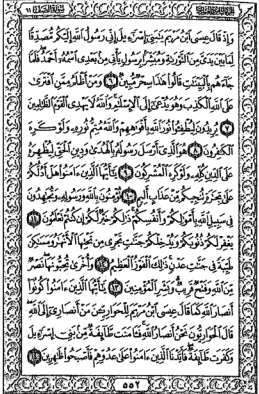 وَإِذۡ قَالَ عِيسَى ٱبۡنُ مَرۡيَمَ يَٰبَنِيٓ إِسۡرَٰٓءِيلَ إِنِّي رَسُولُ ٱللَّهِ إِلَيۡكُم مُّصَدِّقٗا
لِّمَا بَيۡنَ يَدَيَّ مِنَ ٱلتَّوۡرَىٰةِ وَمُبَشِّرَۢا بِرَسُولٖ يَأۡتِي مِنۢ بَعۡدِي ٱسۡمُهُۥٓ أَحۡمَدُۖ فَلَمَّا
جَآءَهُم بِٱلۡبَيِّنَٰتِ قَالُواْ هَٰذَا سِحۡرٞ مُّبِينٞ ٦ وَمَنۡ أَظۡلَمُ مِمَّنِ ٱفۡتَرَىٰ
عَلَى ٱللَّهِ ٱلۡكَذِبَ وَهُوَ يُدۡعَىٰٓ إِلَى ٱلۡإِسۡلَٰمِۚ وَٱللَّهُ لَا يَهۡدِي ٱلۡقَوۡمَ ٱلظَّٰلِمِينَ
٧ يُرِيدُونَ لِيُطۡفِـُٔواْ نُورَ ٱللَّهِ بِأَفۡوَٰهِهِمۡ وَٱللَّهُ مُتِمُّ نُورِهِۦ وَلَوۡ كَرِهَ
ٱلۡكَٰفِرُونَ ٨ هُوَ ٱلَّذِيٓ أَرۡسَلَ رَسُولَهُۥ بِٱلۡهُدَىٰ وَدِينِ ٱلۡحَقِّ لِيُظۡهِرَهُۥ
عَلَى ٱلدِّينِ كُلِّهِۦ وَلَوۡ كَرِهَ ٱلۡمُشۡرِكُونَ ٩ يَٰٓأَيُّهَا ٱلَّذِينَ ءَامَنُواْ هَلۡ أَدُلُّكُمۡ
عَلَىٰ تِجَٰرَةٖ تُنجِيكُم مِّنۡ عَذَابٍ أَلِيمٖ ١٠ تُؤۡمِنُونَ بِٱللَّهِ وَرَسُولِهِۦ وَتُجَٰهِدُونَ
فِي سَبِيلِ ٱللَّهِ بِأَمۡوَٰلِكُمۡ وَأَنفُسِكُمۡۚ ذَٰلِكُمۡ خَيۡرٞ لَّكُمۡ إِن كُنتُمۡ تَعۡلَمُونَ ١١
يَغۡفِرۡ لَكُمۡ ذُنُوبَكُمۡ وَيُدۡخِلۡكُمۡ جَنَّٰتٖ تَجۡرِي مِن تَحۡتِهَا ٱلۡأَنۡهَٰرُ وَمَسَٰكِنَ
طَيِّبَةٗ فِي جَنَّٰتِ عَدۡنٖۚ ذَٰلِكَ ٱلۡفَوۡزُ ٱلۡعَظِيمُ ١٢ وَأُخۡرَىٰ تُحِبُّونَهَاۖ نَصۡرٞ
مِّنَ ٱللَّهِ وَفَتۡحٞ قَرِيبٞۗ وَبَشِّرِ ٱلۡمُؤۡمِنِينَ ١٣ يَٰٓأَيُّهَا ٱلَّذِينَ ءَامَنُواْ كُونُوٓاْ
أَنصَارَ ٱللَّهِ كَمَا قَالَ عِيسَى ٱبۡنُ مَرۡيَمَ لِلۡحَوَارِيِّـۧنَ مَنۡ أَنصَارِيٓ إِلَى ٱللَّهِۖ
قَالَ ٱلۡحَوَارِيُّونَ نَحۡنُ أَنصَارُ ٱللَّهِۖ فَـَٔامَنَت طَّآئِفَةٞ مِّنۢ بَنِيٓ إِسۡرَٰٓءِيلَ
وَكَفَرَت طَّآئِفَةٞۖ فَأَيَّدۡنَا ٱلَّذِينَ ءَامَنُواْ عَلَىٰ عَدُوِّهِمۡ فَأَصۡبَحُواْ ظَٰهِرِينَ ١٤
٥٥٢